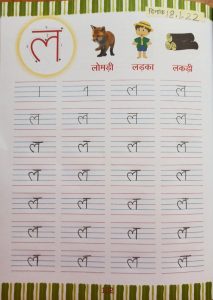 दिनांक 18.1.22
ल
लोमड़ी लड़का लकड़ी
ल ल
ल ल ल ल
ल ल ल ल
ल ल ल ल
ल ल ल ल
ल ल ल ल
ल ल ल ल